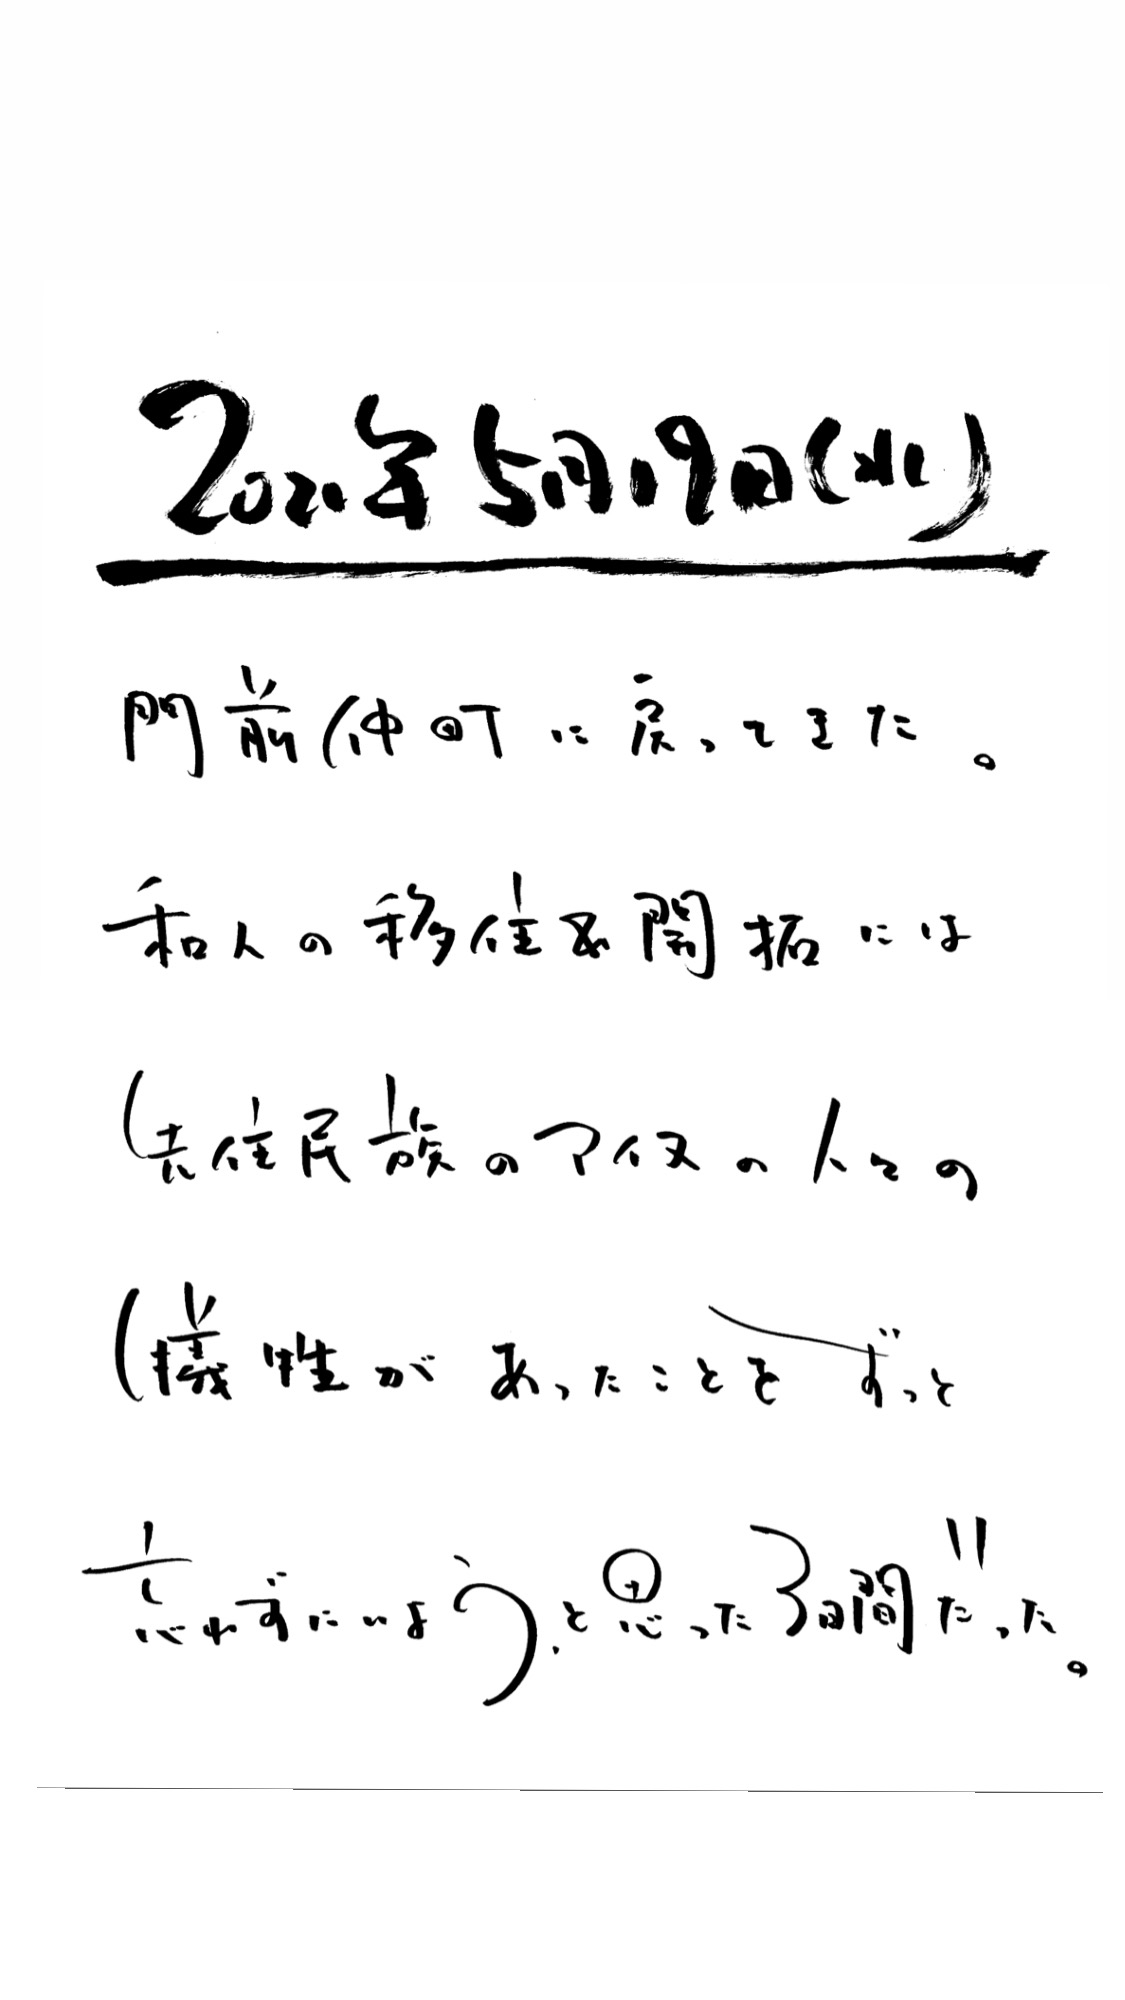 2021年5月19日(水)
門前仲町に戻ってきた。
和人の移住&開拓には
先住民族のアイヌの人々の
犠牲があったことをずっと
忘れずにいよう、と思った3日間だった。